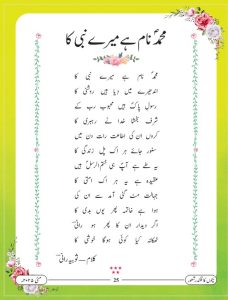 محمدؐ نام ہے میرے نبی کا
محمدؐ نام ہے میرے نبی کا
اندھیرے میں دیا ہیں روشنی کا
رسولِ پاکؐ ہیں محبوب رب کے
شرف بخشا خدا نے رہبری کا
کروں ان کی اطاعت رات دن میں
سنور جائے ہر اک پل زندگی کا
یہ طے ہے آپؐ ہی ختم الرسلؐ ہیں
عقیدہ ہے یہ ہر اک امتی کا
جہالت مٹ گئی آمد سے ان کی
ہوا ہے خاتمہ پھر یوں بدی کا
اگر دیدار ان کا پھر ہو رانیؔ
ٹھکانہ کیا کوئی ہوگا خوشی کا
کلام—ثوبیہ رانیؔ
25
بچوں کا